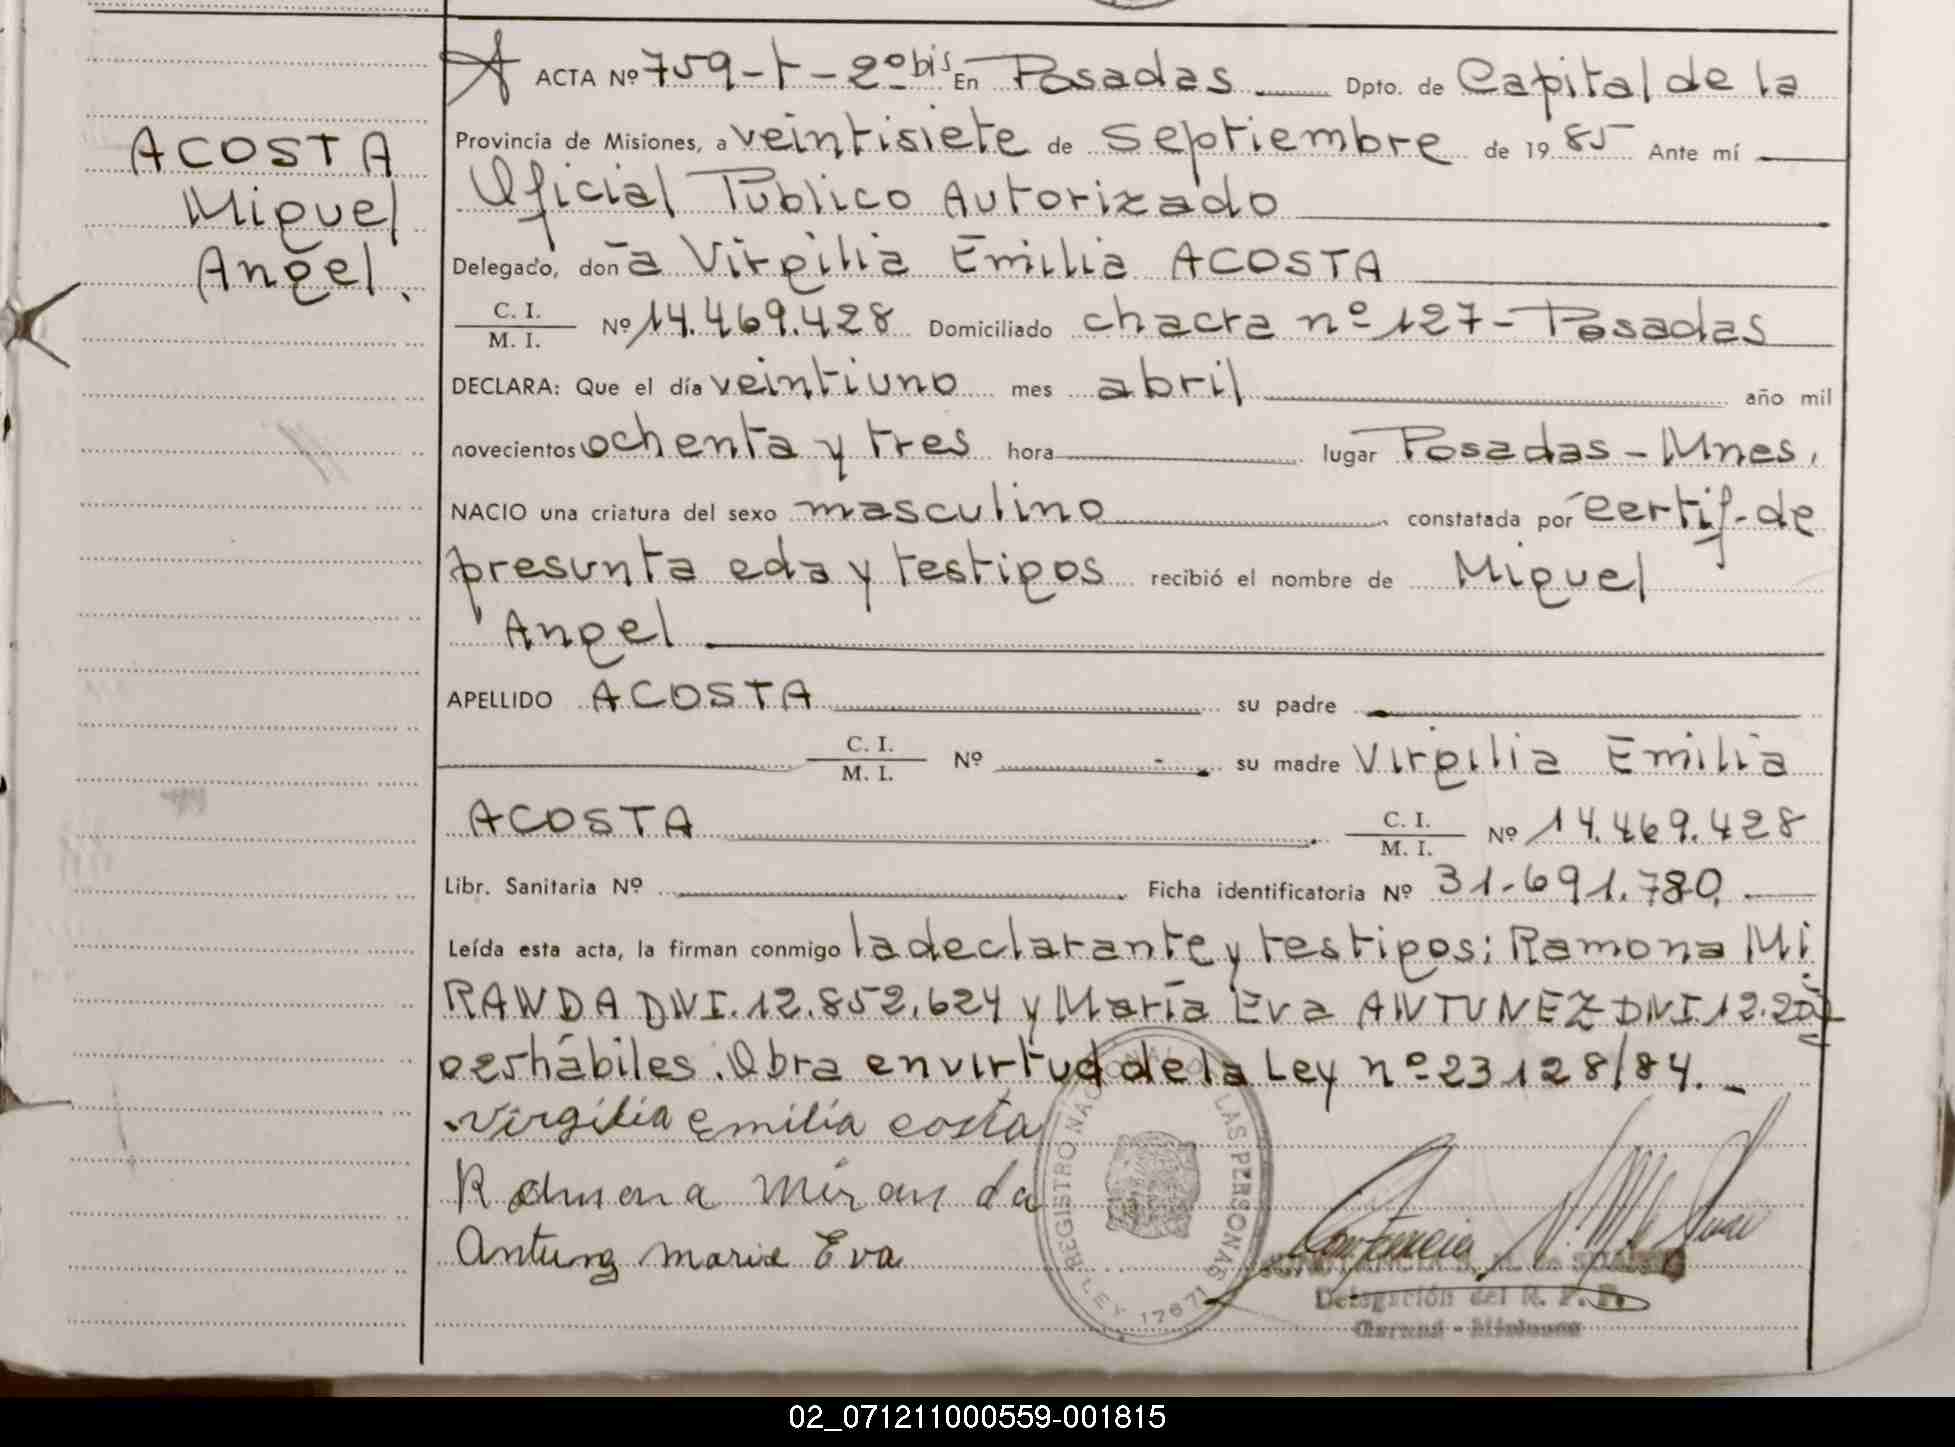 ACOSTA
Miguel
Angel.
A ACTA Nº 759-t-2º bis En Posadas Dpto. de Capital de la
Provincia de Misiones, a veintisiete de septiembre de 1985 Ante mí
Oficial Público Autorizado
Delegado, doña Virgilia Emilia ACOSTA
C. I.
M. I. Nº 14.469.428 Domiciliado chacra nº 127-Posadas
DECLARA: Que el día veintiuno mes abril año mil
novecientos ochenta y tres hora lugar Posadas-Mnes.
NACIO una criatura del sexo masculino constatada por certif-de
presunta eda y testigos recibió el nombre de Miguel
Angel
APELLIDO ACOSTA su padre
C. I.
M. I. Nº su madre Virgilia Emilia
ACOSTA C. I.
M. I. Nº 14.469.428
Libr. Sanitaria Nº Ficha identificatoria Nº 31.691.780
Leída esta acta, la firman conmigo la declarante y testigos: Ramona MI
RANDA DNI.12.852.624 y María Eva ANTUNEZ DNI.12.20
hábiles. Obra en virtud de la Ley nº 23128/84.-
Virgilia Emilia costa
Ramona Miranda
Antunez maria Eva
REGISTRO NACIONAL DE LAS PERSONAS
LEY 17671
Delegación del R. P. P.
02_071211000559-001815